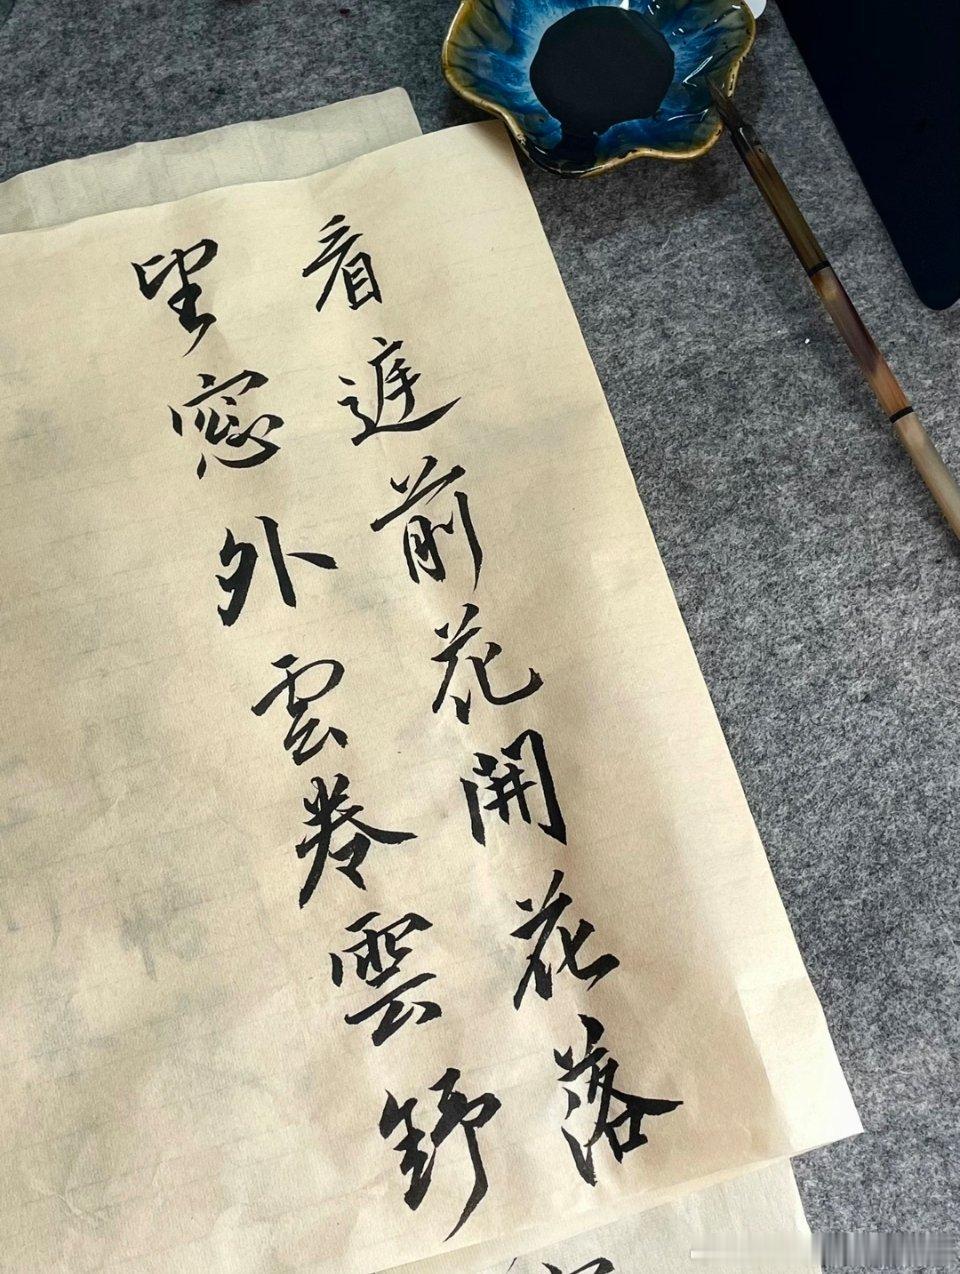 看庭前花開花落
望窓外雲卷雲舒